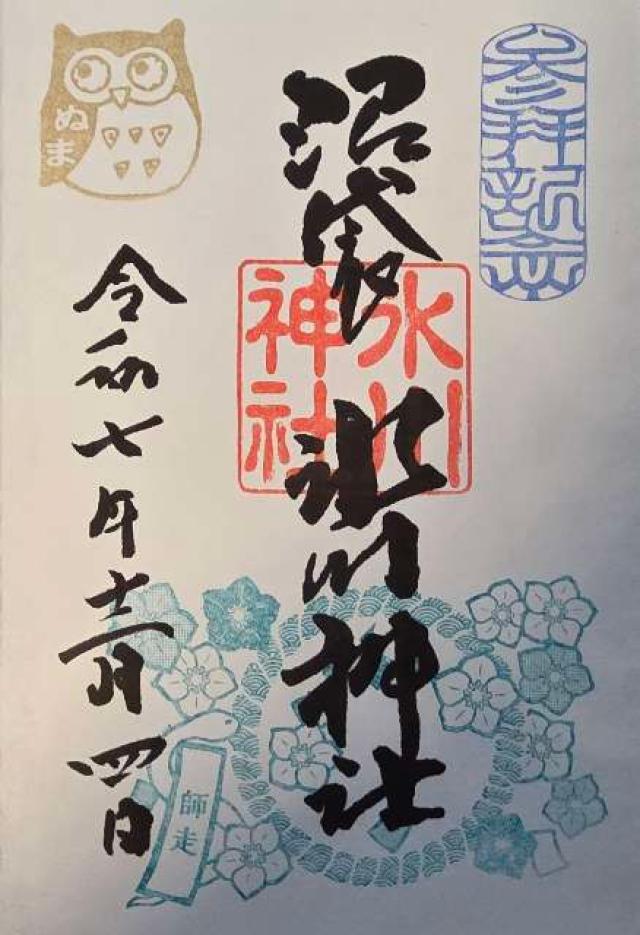 参拝記念
沼袋 氷川神社
氷川
神社
ぬま
令和七年十二月四日
師走